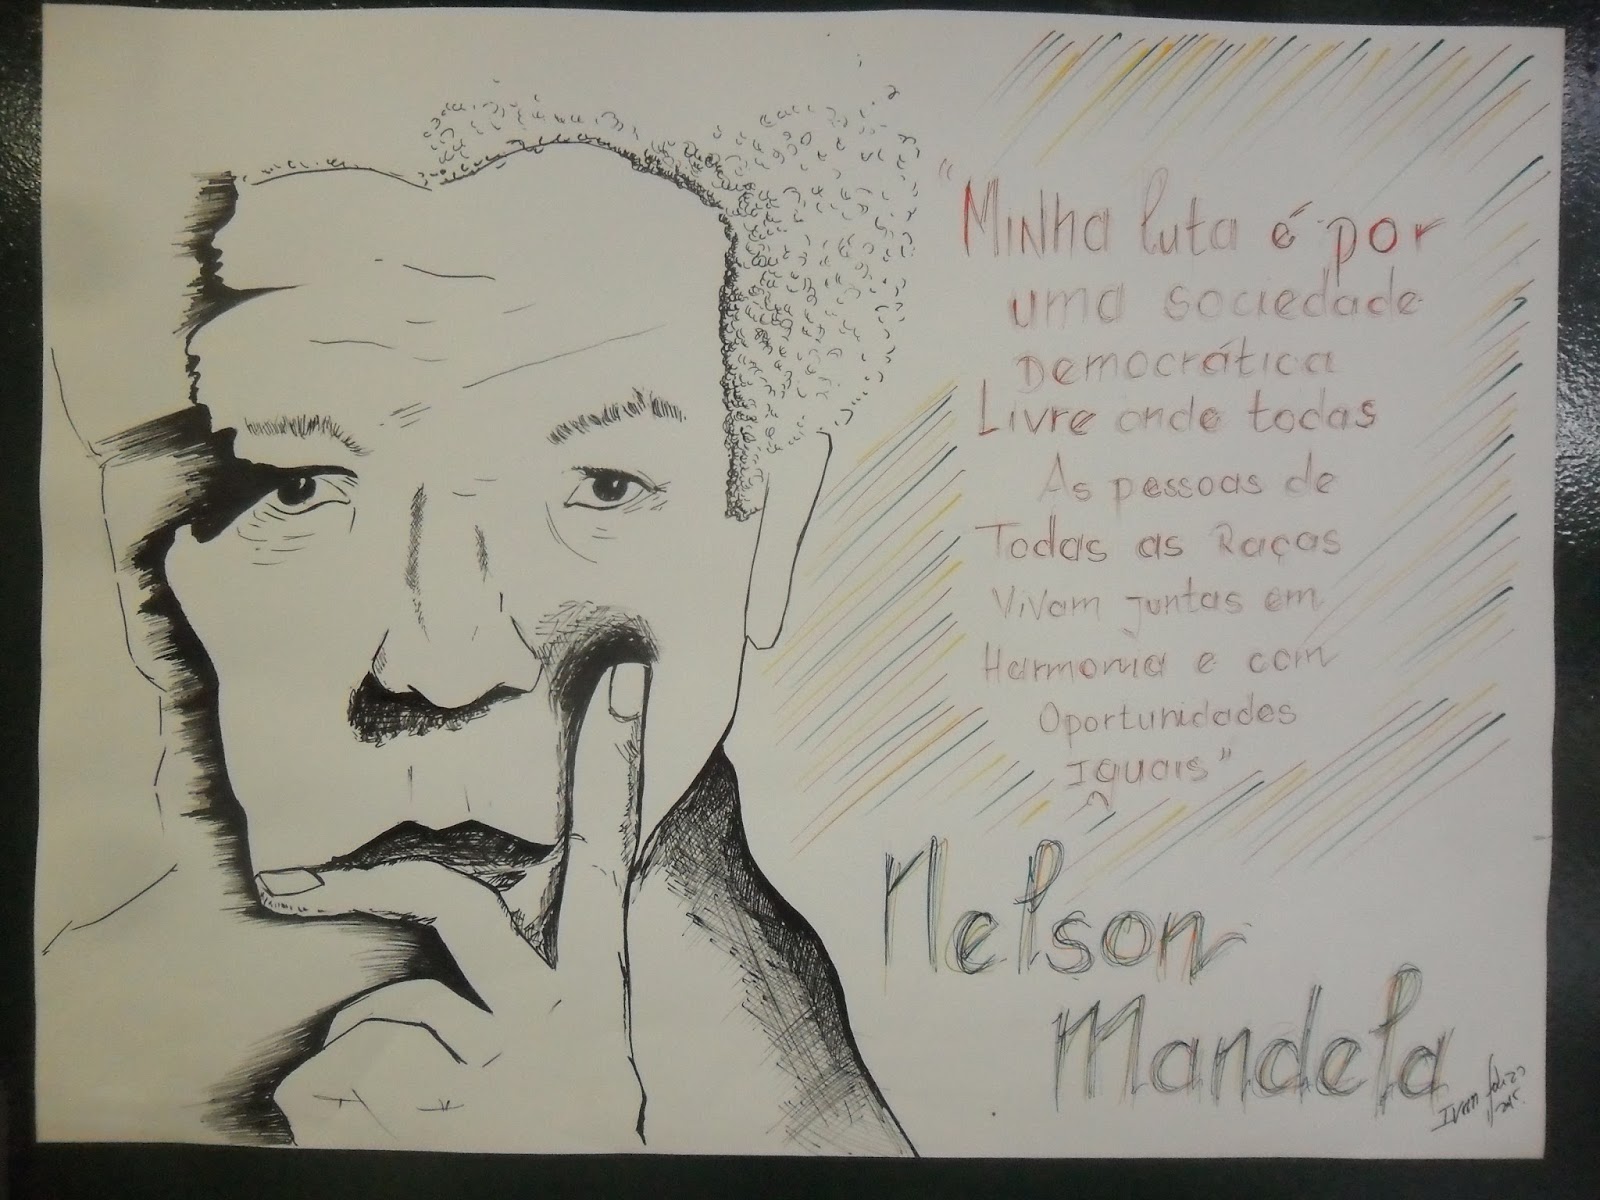 "Minha luta é por
uma sociedade
Democrática
Livre onde todas
As pessoas de
Todas as Raças
Vivam juntas em
Harmonia e com
Oportunidades
Iguais"
Nelson
Mandela
Ivan